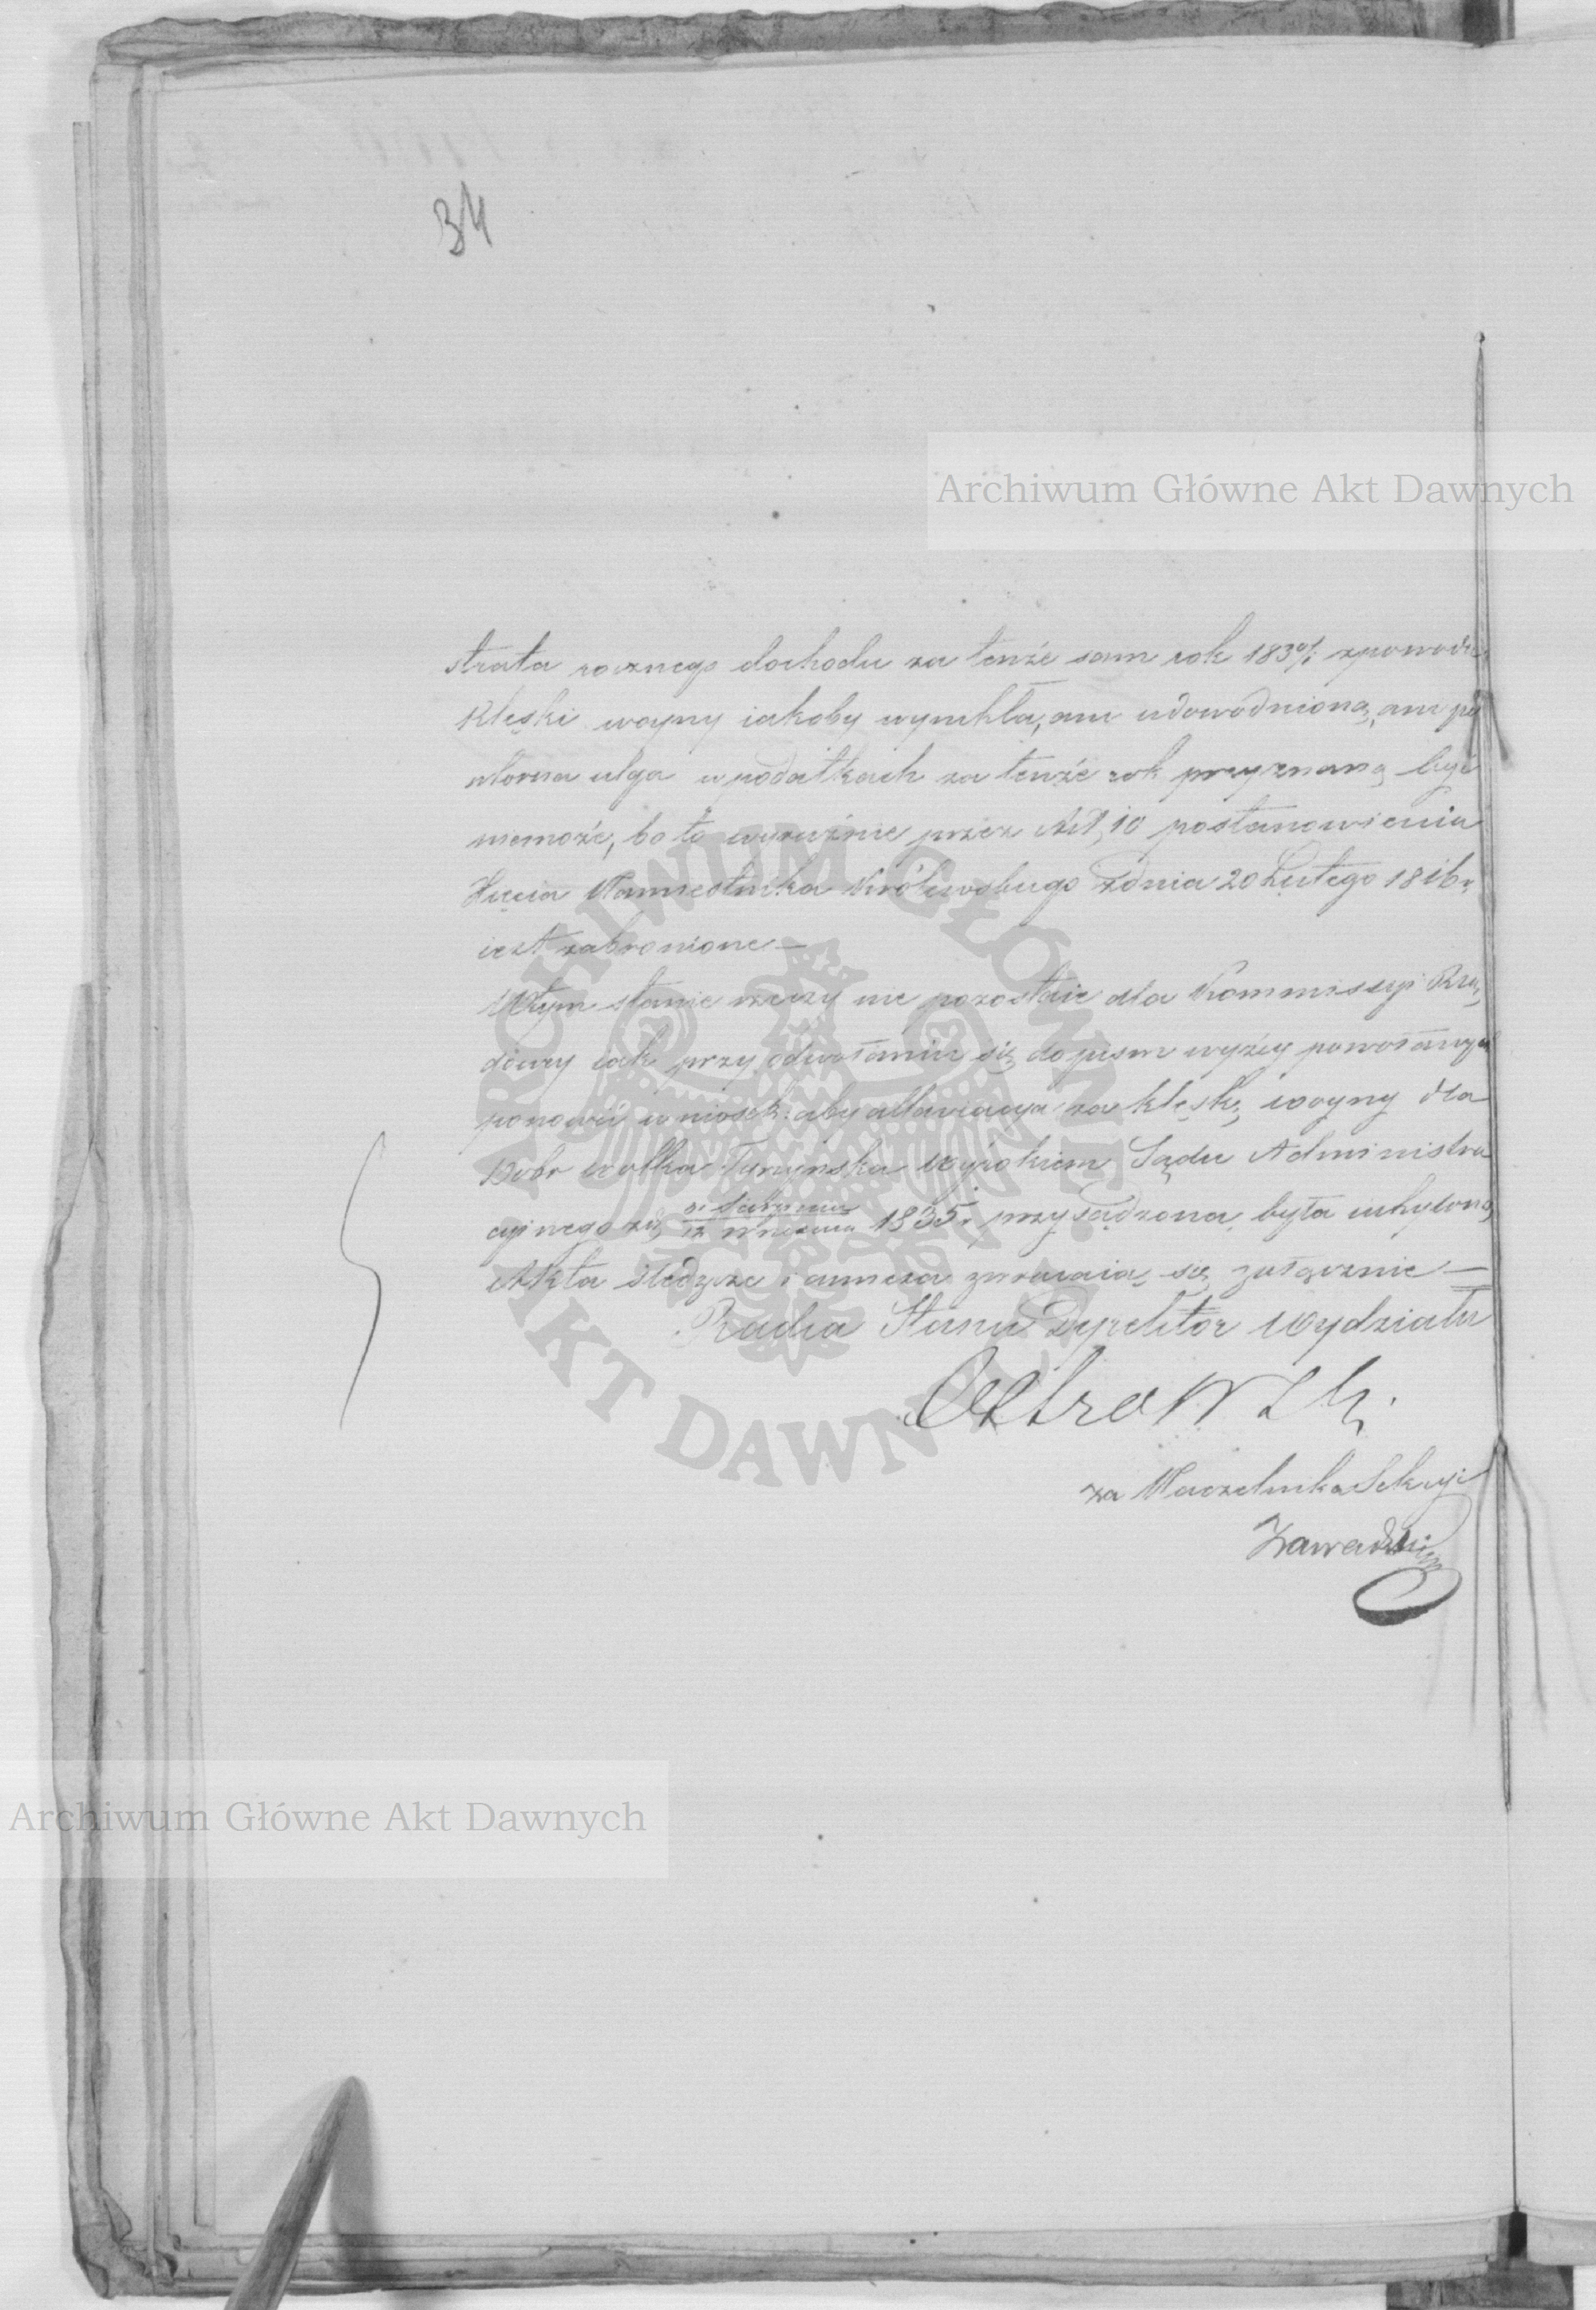 34
Archiwum Główne Akt Dawnych
strata rocznego dochodu za tenże sam rok 183 0/1 zpowodu
Klęski woyny iakoby wynikła, ani udowodnioną, ani po
wtorna ulga w podatkach za tenże rok przyznaną być
niemoże, bo to wyraźnie przez Art, 10 postanowienia
Xięcia Namiestnika Królewskiego zdnia 20 Lutego 1816 r
iest zabronione —
Wtym stanie rzeczy nie pozostaie dla Kommissyi Rzą„
dowey iak przy odwołaniu się do pism wyżey powołanych
ponowić wniosek: aby allewiacya za klęskę woyny dla
Dobr Wolka Turzynska wyrokiem Sądu Administra
cyinego zd, 31 Sierpnia / 12 Września 1835 r przysądzona, była uchyloną,
Akta śledcze i annexa zwracaią się załącznie —
Radca Stanu Dyrektor Wydziału
Ostrowski
za Naczelnika Sekcyi
Zawadzki
Archiwum Główne Akt Dawnych
ARCHIWUM GŁÓWNE AKT DAWNYCH